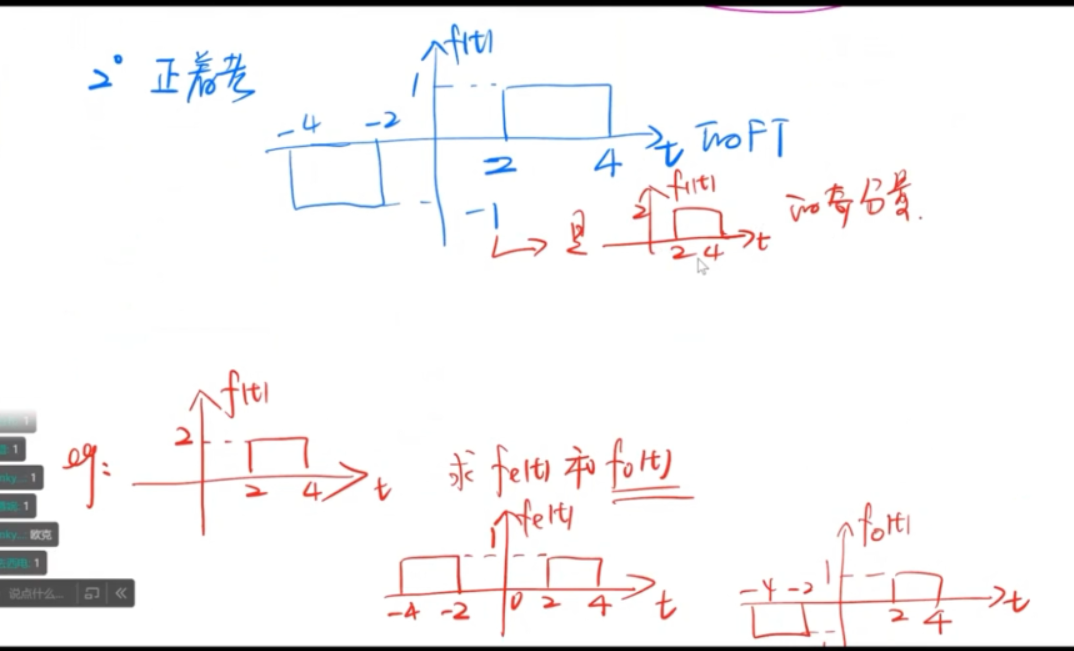 2° 正着考
f(t)
1
-4 -2
2 4 t 的FT
-1
是 f₁(t) 2 2 4 t 的奇分量.
f(t)
2
eg: 2 4 t
求 fe(t) 和 fo(t)
fe(t)
1
-4 -2 0 2 4 t
fo(t)
1
-4 -2 2 4 t
1
1
nky...: 1
1
nky...: 欧克
1
说点什么...